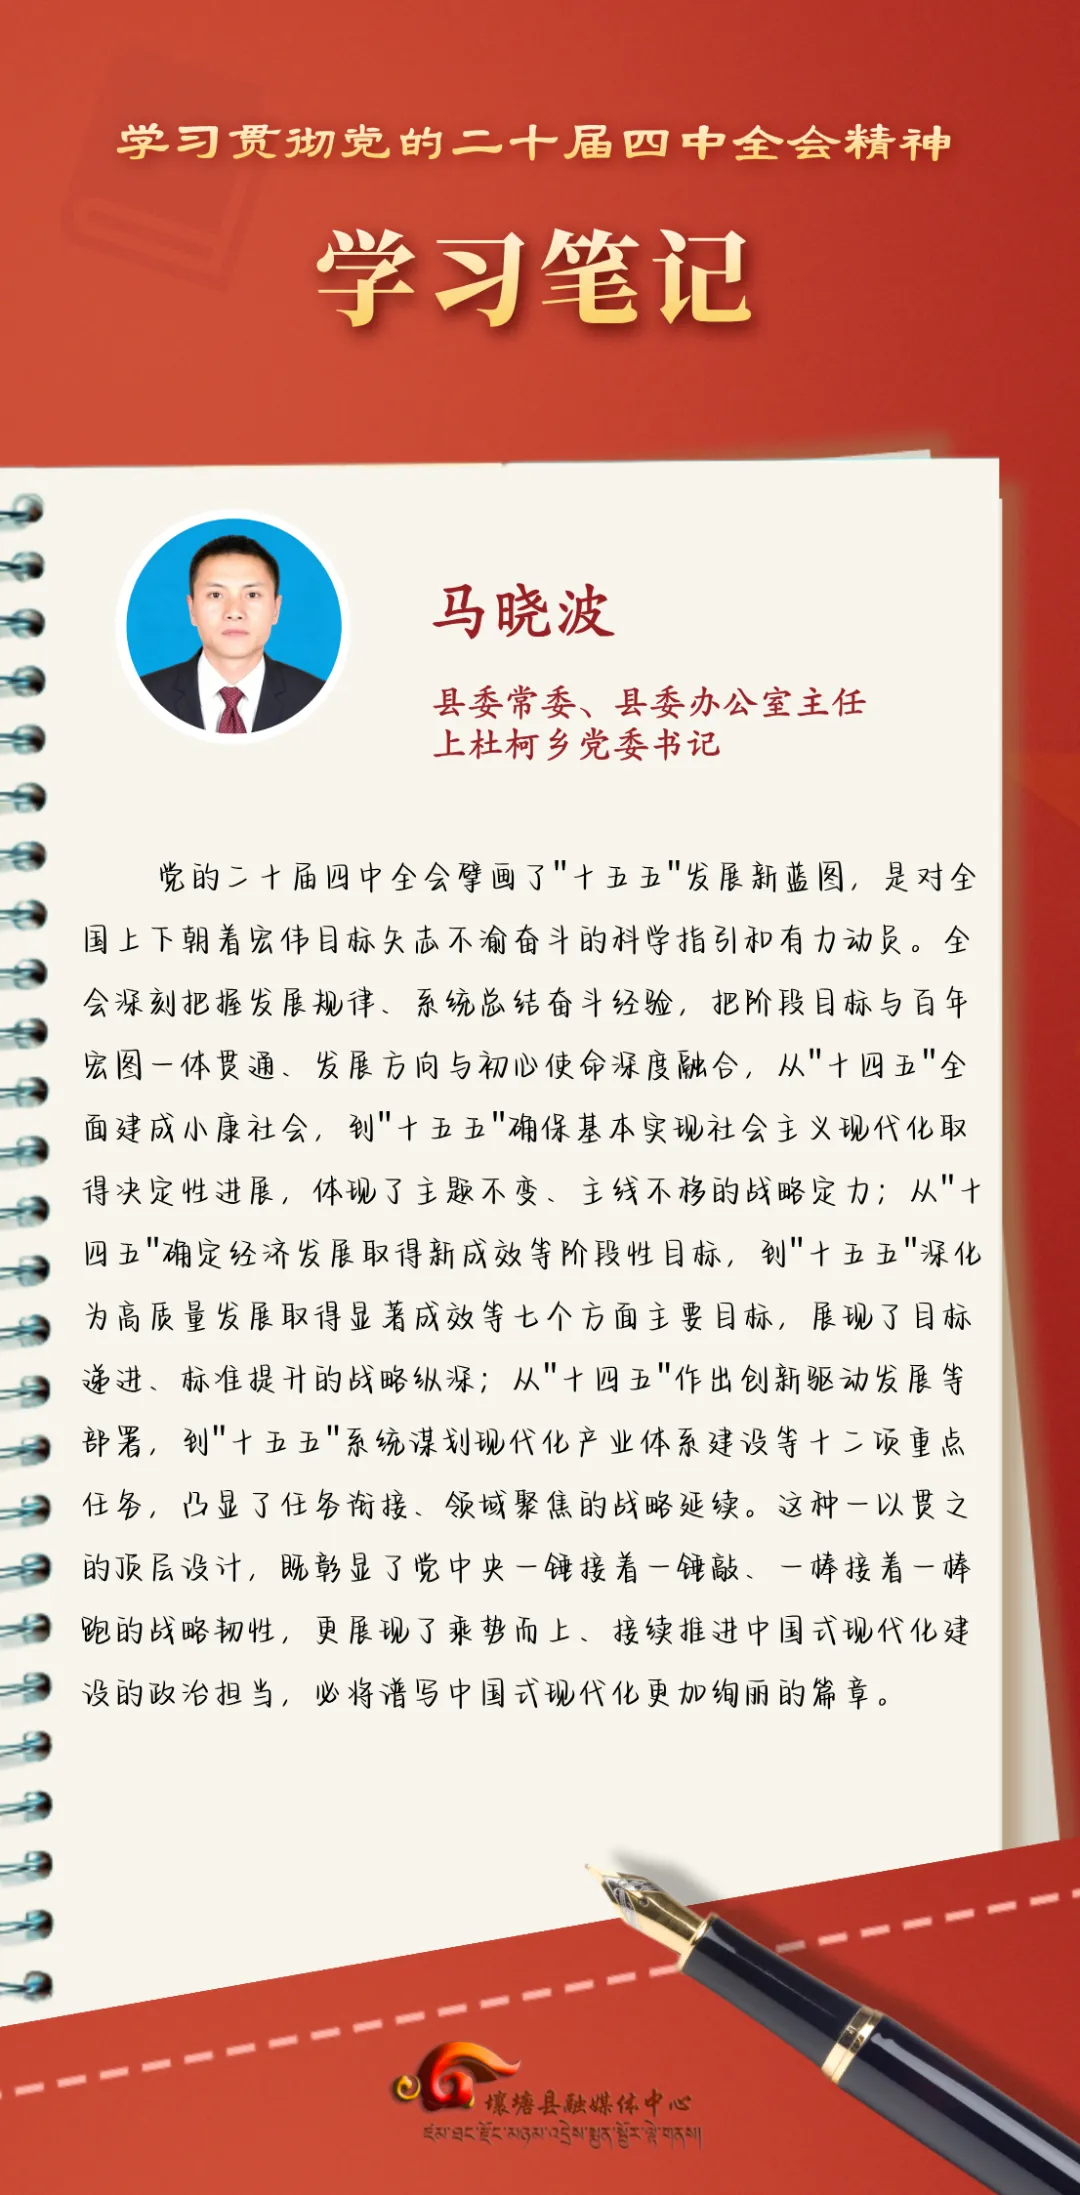 学习贯彻党的二十届四中全会精神
学习笔记
马晓波
县委常委、县委办公室主任
上杜柯乡党委书记
党的二十届四中全会擘画了"十五五"发展新蓝图，是对全
国上下朝着宏伟目标矢志不渝奋斗的科学指引和有力动员。全
会深刻把握发展规律、系统总结奋斗经验，把阶段目标与百年
宏图一体贯通、发展方向与初心使命深度融合，从"十四五"全
面建成小康社会，到"十五五"确保基本实现社会主义现代化取
得决定性进展，体现了主题不变、主线不移的战略定力；从"十
四五"确定经济发展取得新成效等阶段性目标，到"十五五"深化
为高质量发展取得显著成效等七个方面主要目标，展现了目标
递进、标准提升的战略纵深；从"十四五"作出创新驱动发展等
部署，到"十五五"系统谋划现代化产业体系建设等十二项重点
任务，凸显了任务衔接、领域聚焦的战略延续。这种一以贯之
的顶层设计，既彰显了党中央一锤接着一锤敲、一棒接着一棒
跑的战略韧性，更展现了乘势而上、接续推进中国式现代化建
设的政治担当，必将谱写中国式现代化更加绚丽的篇章。
壤塘县融媒体中心
ཛམ་ཐང་རྫོང་མཉམ་འདྲེས་སྨྱན་སྦྱོར་ལྟེ་གནས།